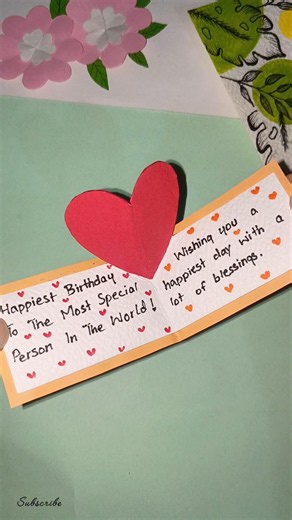 Happiest Birthday
To The Most Special
Person In The World!
Wishing you a
happiest day with a
lot of blessings.
Subscribe